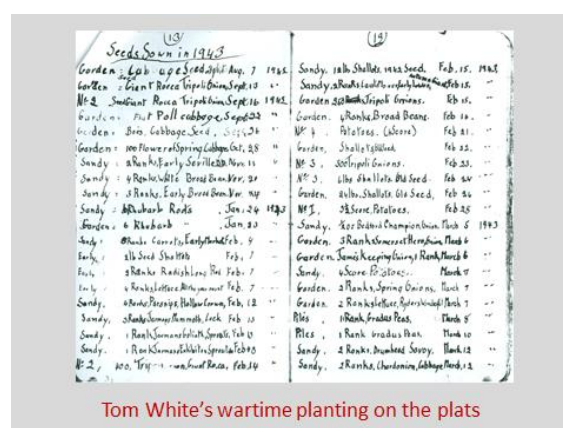 (13)
Seeds Sown in 1943
Garden: Cabbage Seed, Aug. 7 1942.
Garden = Giant Rocca Tripoli Onion, Sept. 13 "
Nº 2 Giant Rocca Tripoli Onion, Sept. 16 1942.
Garden: Poll cabbage, Sept 22 "
Garden: Cabbage Seed,
Garden: 100 Flower of Spring Cabbage, Oct, 28 "
Sandy: 2 Ranks, Early Seville Bn. Nov. 11 "
Sandy: 4 Ranks, White Broad Bean. Nov. 20 "
Sandy: 3 Ranks, Early Broad Bean. Nov. 24 "
Sandy: Rhubarb Roots. Jan. 24 1943
Garden: 6 Rhubarb - Jan. 23 "
Sandy: Ranks Carrots, Early Market Feb. 4 "
Early, 2 lb Seed Shallots Feb, 7 "
Early, 2 Ranks Radish Long Red Feb. 7 "
Early, 4 Ranks Lettuce, All the year round Feb. 7 "
Sandy, Ranks Parsnips, Hollow Crown, Feb, 12 "
Sandy, Ranks Mammoth, Leek Feb 13 "
Sandy. 1 Rank Goliath, Sprouts, Feb 13 "
Sandy. 1 Rank Exhibition Sprouts Feb 13 "
Nº 2, 100, Giant Rocca, Feb, 14 "
(14)
Sandy. 12 lb Shallots, 1942 Seed, Feb, 15. 1943,
Sandy, 2 Ranks Feb 15.
Garden Tripoli Onions. Feb 15.
Garden, 4 Ranks, Broad Beans. Feb 16.
Nº 4. Potatoes. (Score) Feb 21.
Garden, Shallots, Feb 22.
Nº 3. 300 Tripoli Onions. Feb 23.
Nº 3. 6 lbs Shallots. Old Seed. Feb 24
Garden. 4 lbs, Shallots, Old Seed, Feb 26
Nº 1, Score, Potatoes. Feb 28
Sandy. oz Bedford Champion Onion. March 5 1943
Garden. 3 Ranks, Onion, March 6 "
Garden James Keeping Onions, Rank, March 6 "
Sandy. 4 Score Potatoes. March 7 "
Garden. 2 Ranks, Spring Onions, March 7 "
Garden 2 Ranks lettuce, March 7 "
Piles, 1 Rank, Gradus Peas, March 8 "
Piles, 1 Rank Gradus Peas, March 10 "
Sandy. 2 Ranks, Drumhead Savoy. March, 12 "
Sandy, 2 Ranks, Cabbage March, 12 "
Tom White's wartime planting on the plats